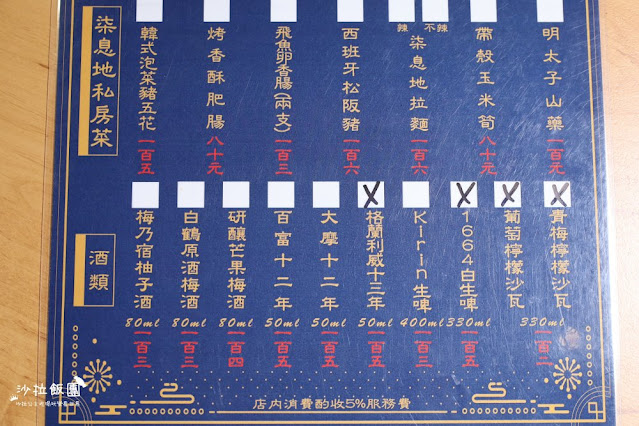 柒息地私房菜
明太子山藥
一百元
帶殼玉米筍
八十元
辣
不辣
柒息地拉麵
一百六
西班牙松阪豬
一百六
飛魚卵香腸(兩支)
一百三
烤香酥肥腸
八十元
韓式泡菜豬五花
一百五
酒類
X
青梅檸檬沙瓦
X
葡萄檸檬沙瓦
330ml
一百二
X
1664白生啤
330ml
一百五
Kirin生啤
400ml
一百三
X
格蘭利威十三年
50ml
一百五
大摩十二年
50ml
一百五
百富十二年
50ml
一百五
研釀芒果梅酒
80ml
一百四
白鶴原酒梅酒
80ml
一百三
梅乃宿柚子酒
80ml
一百三
店內消費酌收5%服務費
沙拉飯團